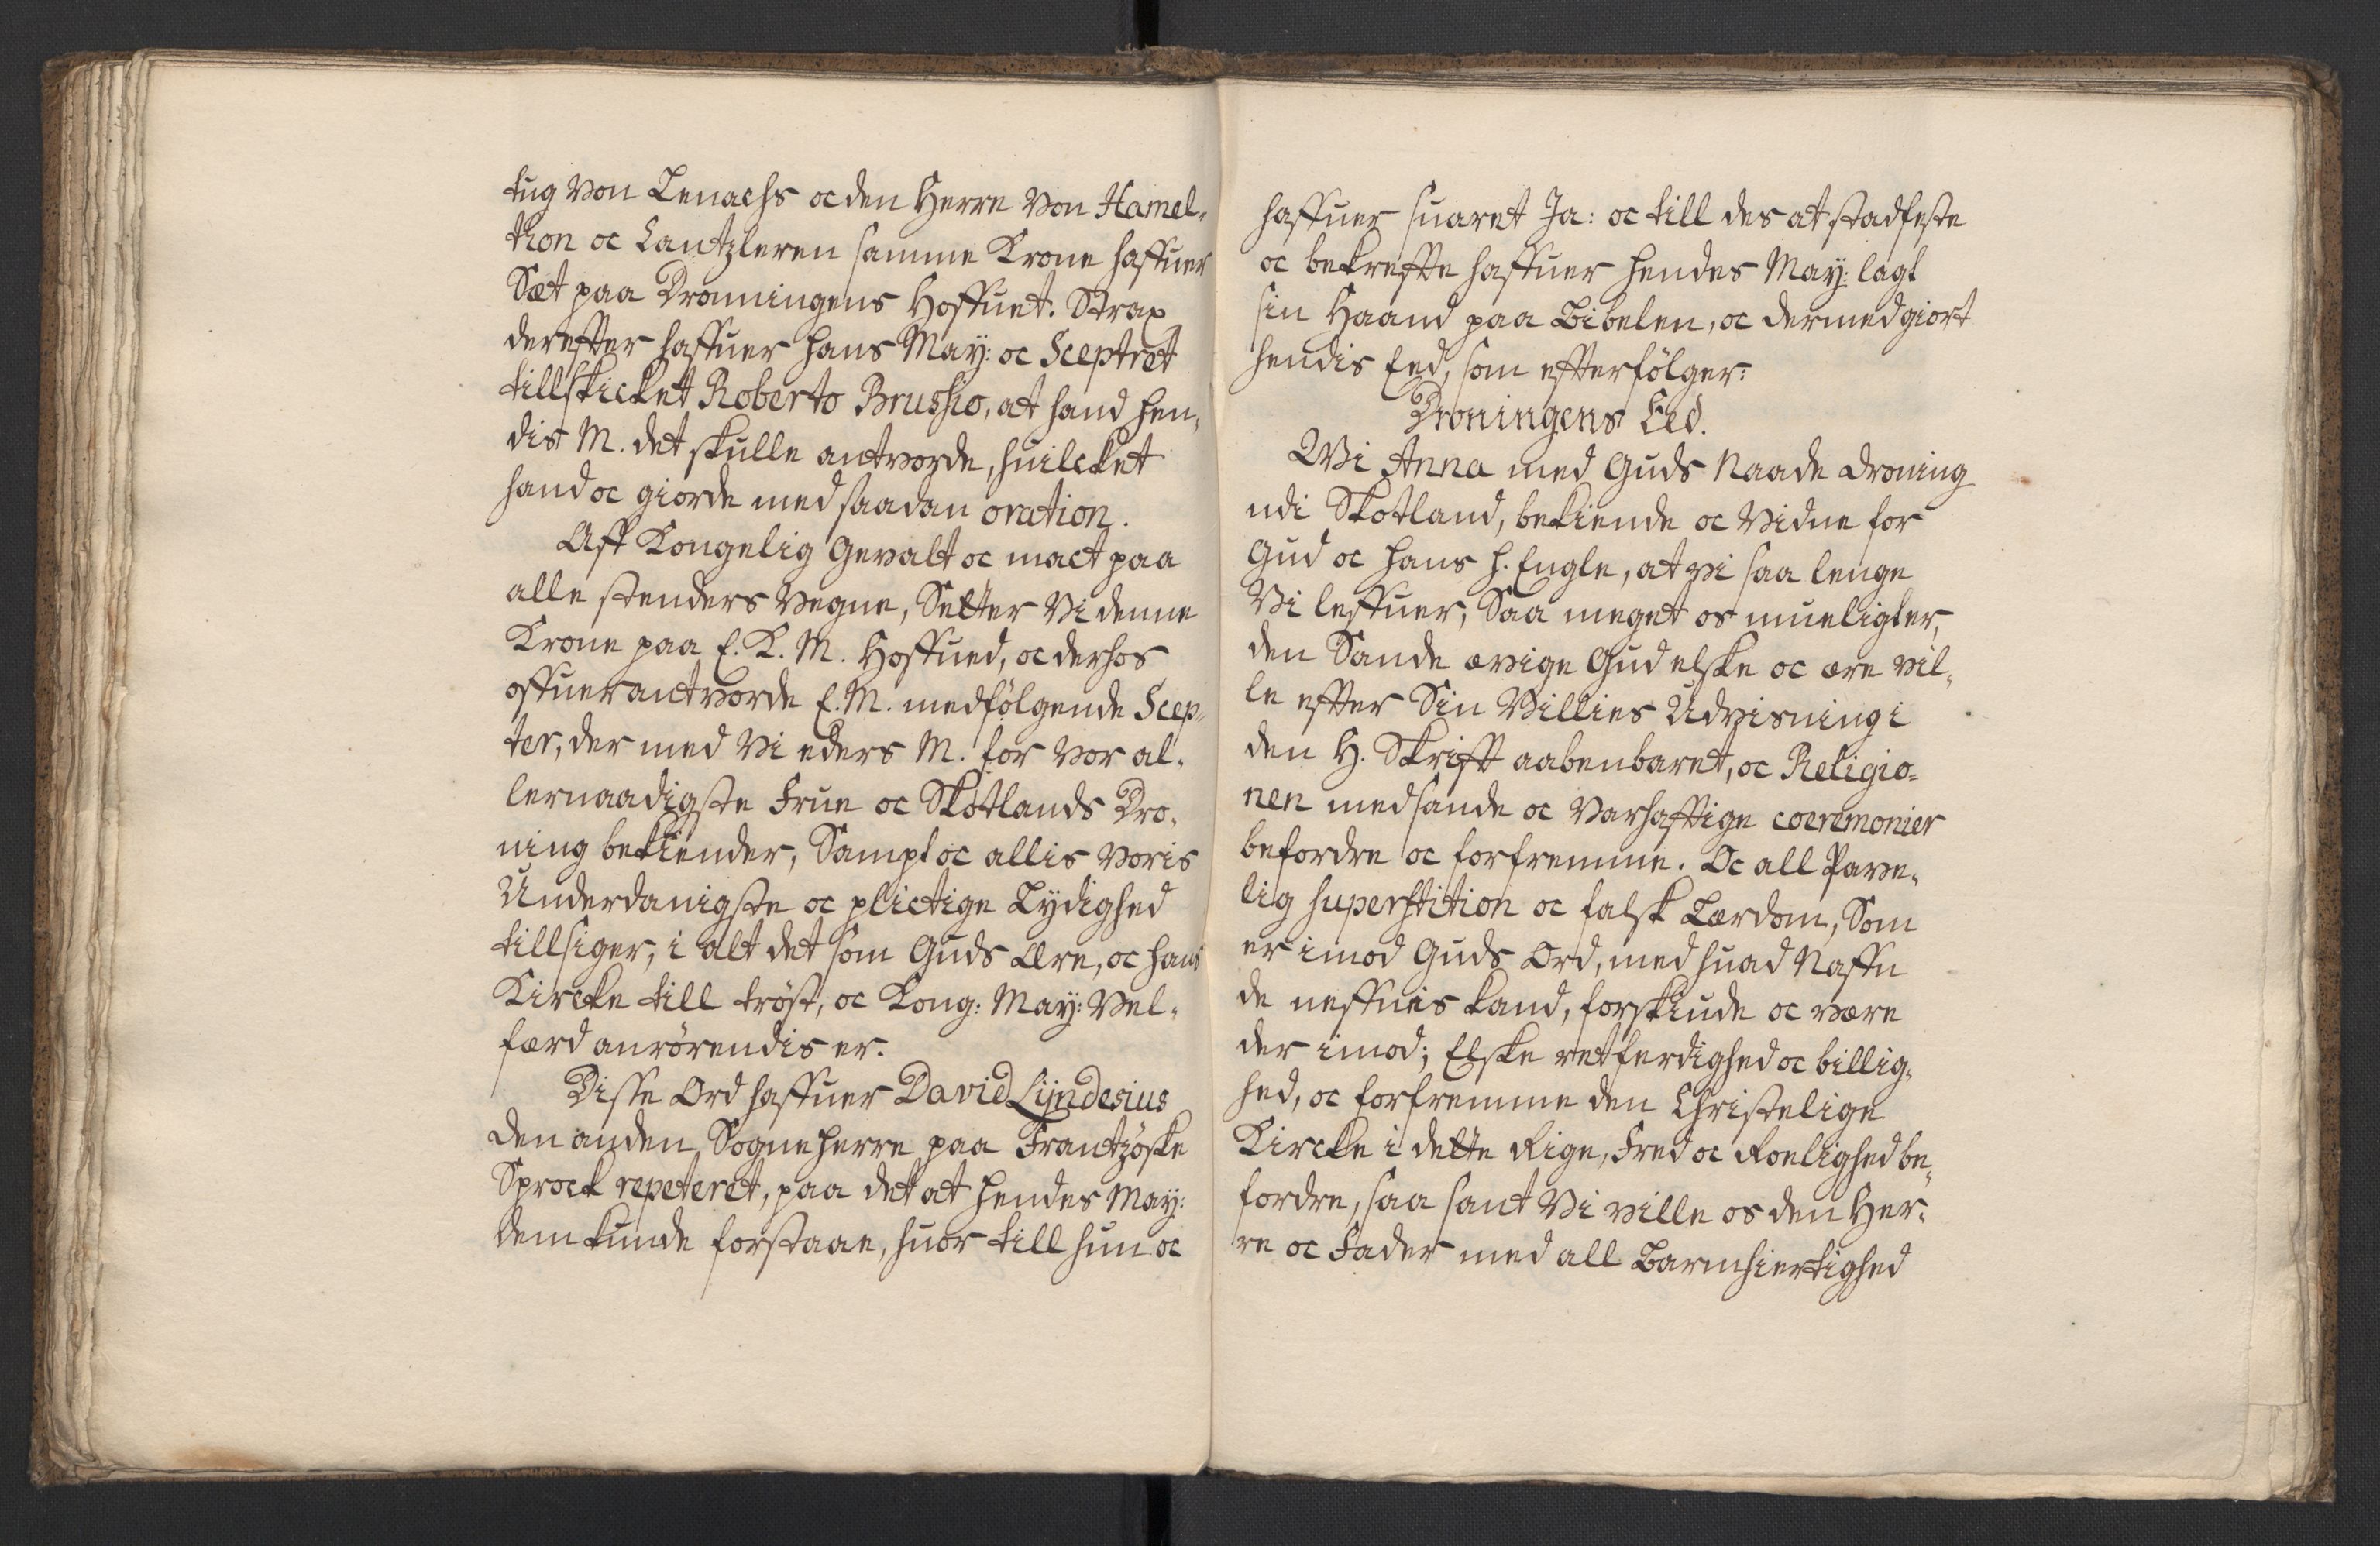 tug von Lenachs oc den Herre von Hamel-
thon oc Cantzleren samme Krone haffuer
Sæt paa Dronningens Hoffuet. Strax
derefter haffuer hans May: oc Sceptret
tillskicket Roberto Brussio, at hand hen,
dis M. det skulle antvorde, huilcket
hand oc giorde med saadan oration.
Aff Kongelig Gewalt oc mact paa
alle stenders Vegne, Setter Vi denne
Krone paa E. K. M. Hoffued, oc derhos
offuerantvorde E. M. medfölgende Scep-
ter, der med Vi eders M. for vor al-
lernaadigste Frue oc Skotlands Dro-
ning bekiender, Sampt oc allis voris
Underdanigste oc plictige Lydighed
tillsiger, i alt det som Guds Ære, oc hans
Kircke till tröst, oc Kong: May: Vel-
færd anrörendis er.
Disse Ord haffuer David Lijndesius
den anden Sogneherre paa Frantzöske
Sprock repeteret, paa det at hendes May:
dem kunde forstaae, huor till hun oc
haffuer suaret Ja: oc till des at stadfeste
oc bekreffte haffuer hendes May: lagt
sin Haand paa Bibelen, oc dermed giort
hendis Eed, som efterfölger:
Droningens Eed.
Wi Anna med Guds Naade Droning
udi Skotland, bekiende oc Vidne for
Gud oc hans h. Engle, at vi saa lenge
Vi leffuer, Saa meget os mueligt er,
den Sande ævige Gud elske oc ære vil-
le efter Sin Villies Udvisning i
den H. Skrifft aabenbaret, oc Religio-
nen med sande oc Varhafftige coeremonier
befordre oc forfremme. Oc all Pave-
lig superstition oc falsk Lærdom, Som
er imod Guds Ord, med huad Naffn
de neffnis kand, forskiude oc være
der imod; Elske retferdighed oc billig-
hed, oc forfremme den Christelige
Kircke i dette Rige, Fred oc Roelighed be-
fordre, saa sant Vi ville os den Her-
re oc Fader med all Barmhiertighed